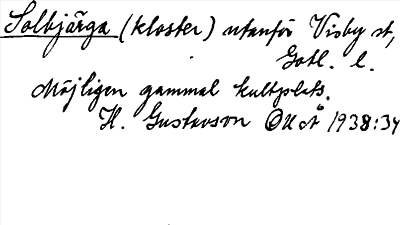 Solbjärga (kloster) utanför Visby st,
Gotl. l.
Möjligen gammal kultplats.
H. Gustavson OUÅ 1938:34